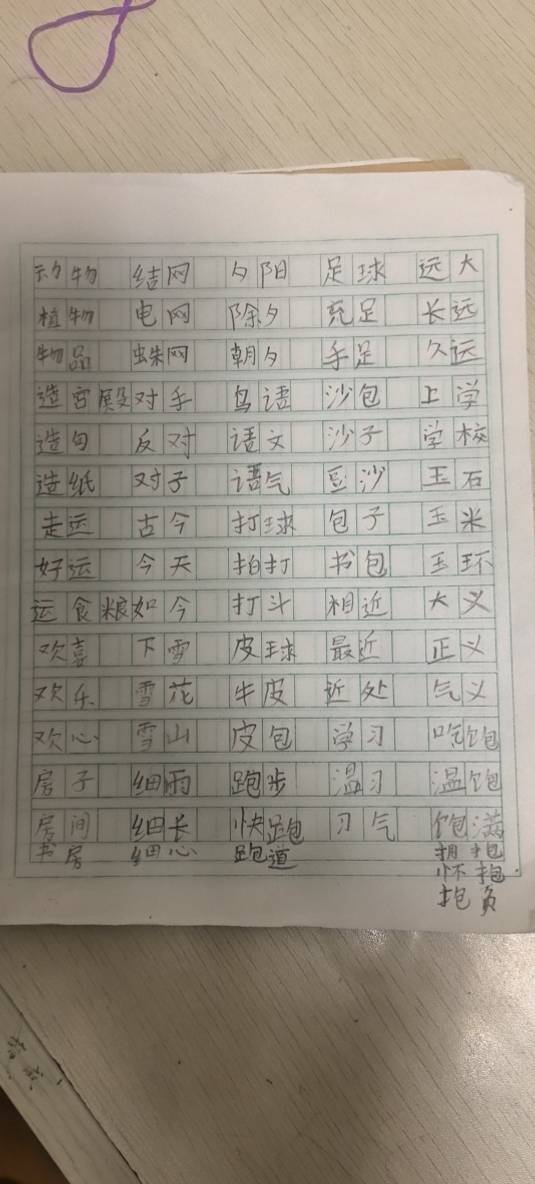 动物 结网 夕阳 足球 远大
植物 电网 除夕 充足 长远
物品 蛛网 朝夕 手足 久远
造宫殿 对手 鸟语 沙包 上学
造句 反对 语文 沙子 学校
造纸 对子 语气 豆沙 玉石
走运 古今 打球 包子 玉米
好运 今天 拍打 书包 玉环
运食粮 如今 打斗 相近 大义
欢喜 下雪 皮球 最近 正义
欢乐 雪花 牛皮 近处 气义
欢心 雪山 皮包 学习 吃饱
房子 细雨 跑步 温习 温饱
房间 细长 快跑 习气 饱满
书房 细心 跑道 拥抱
怀抱
抱负